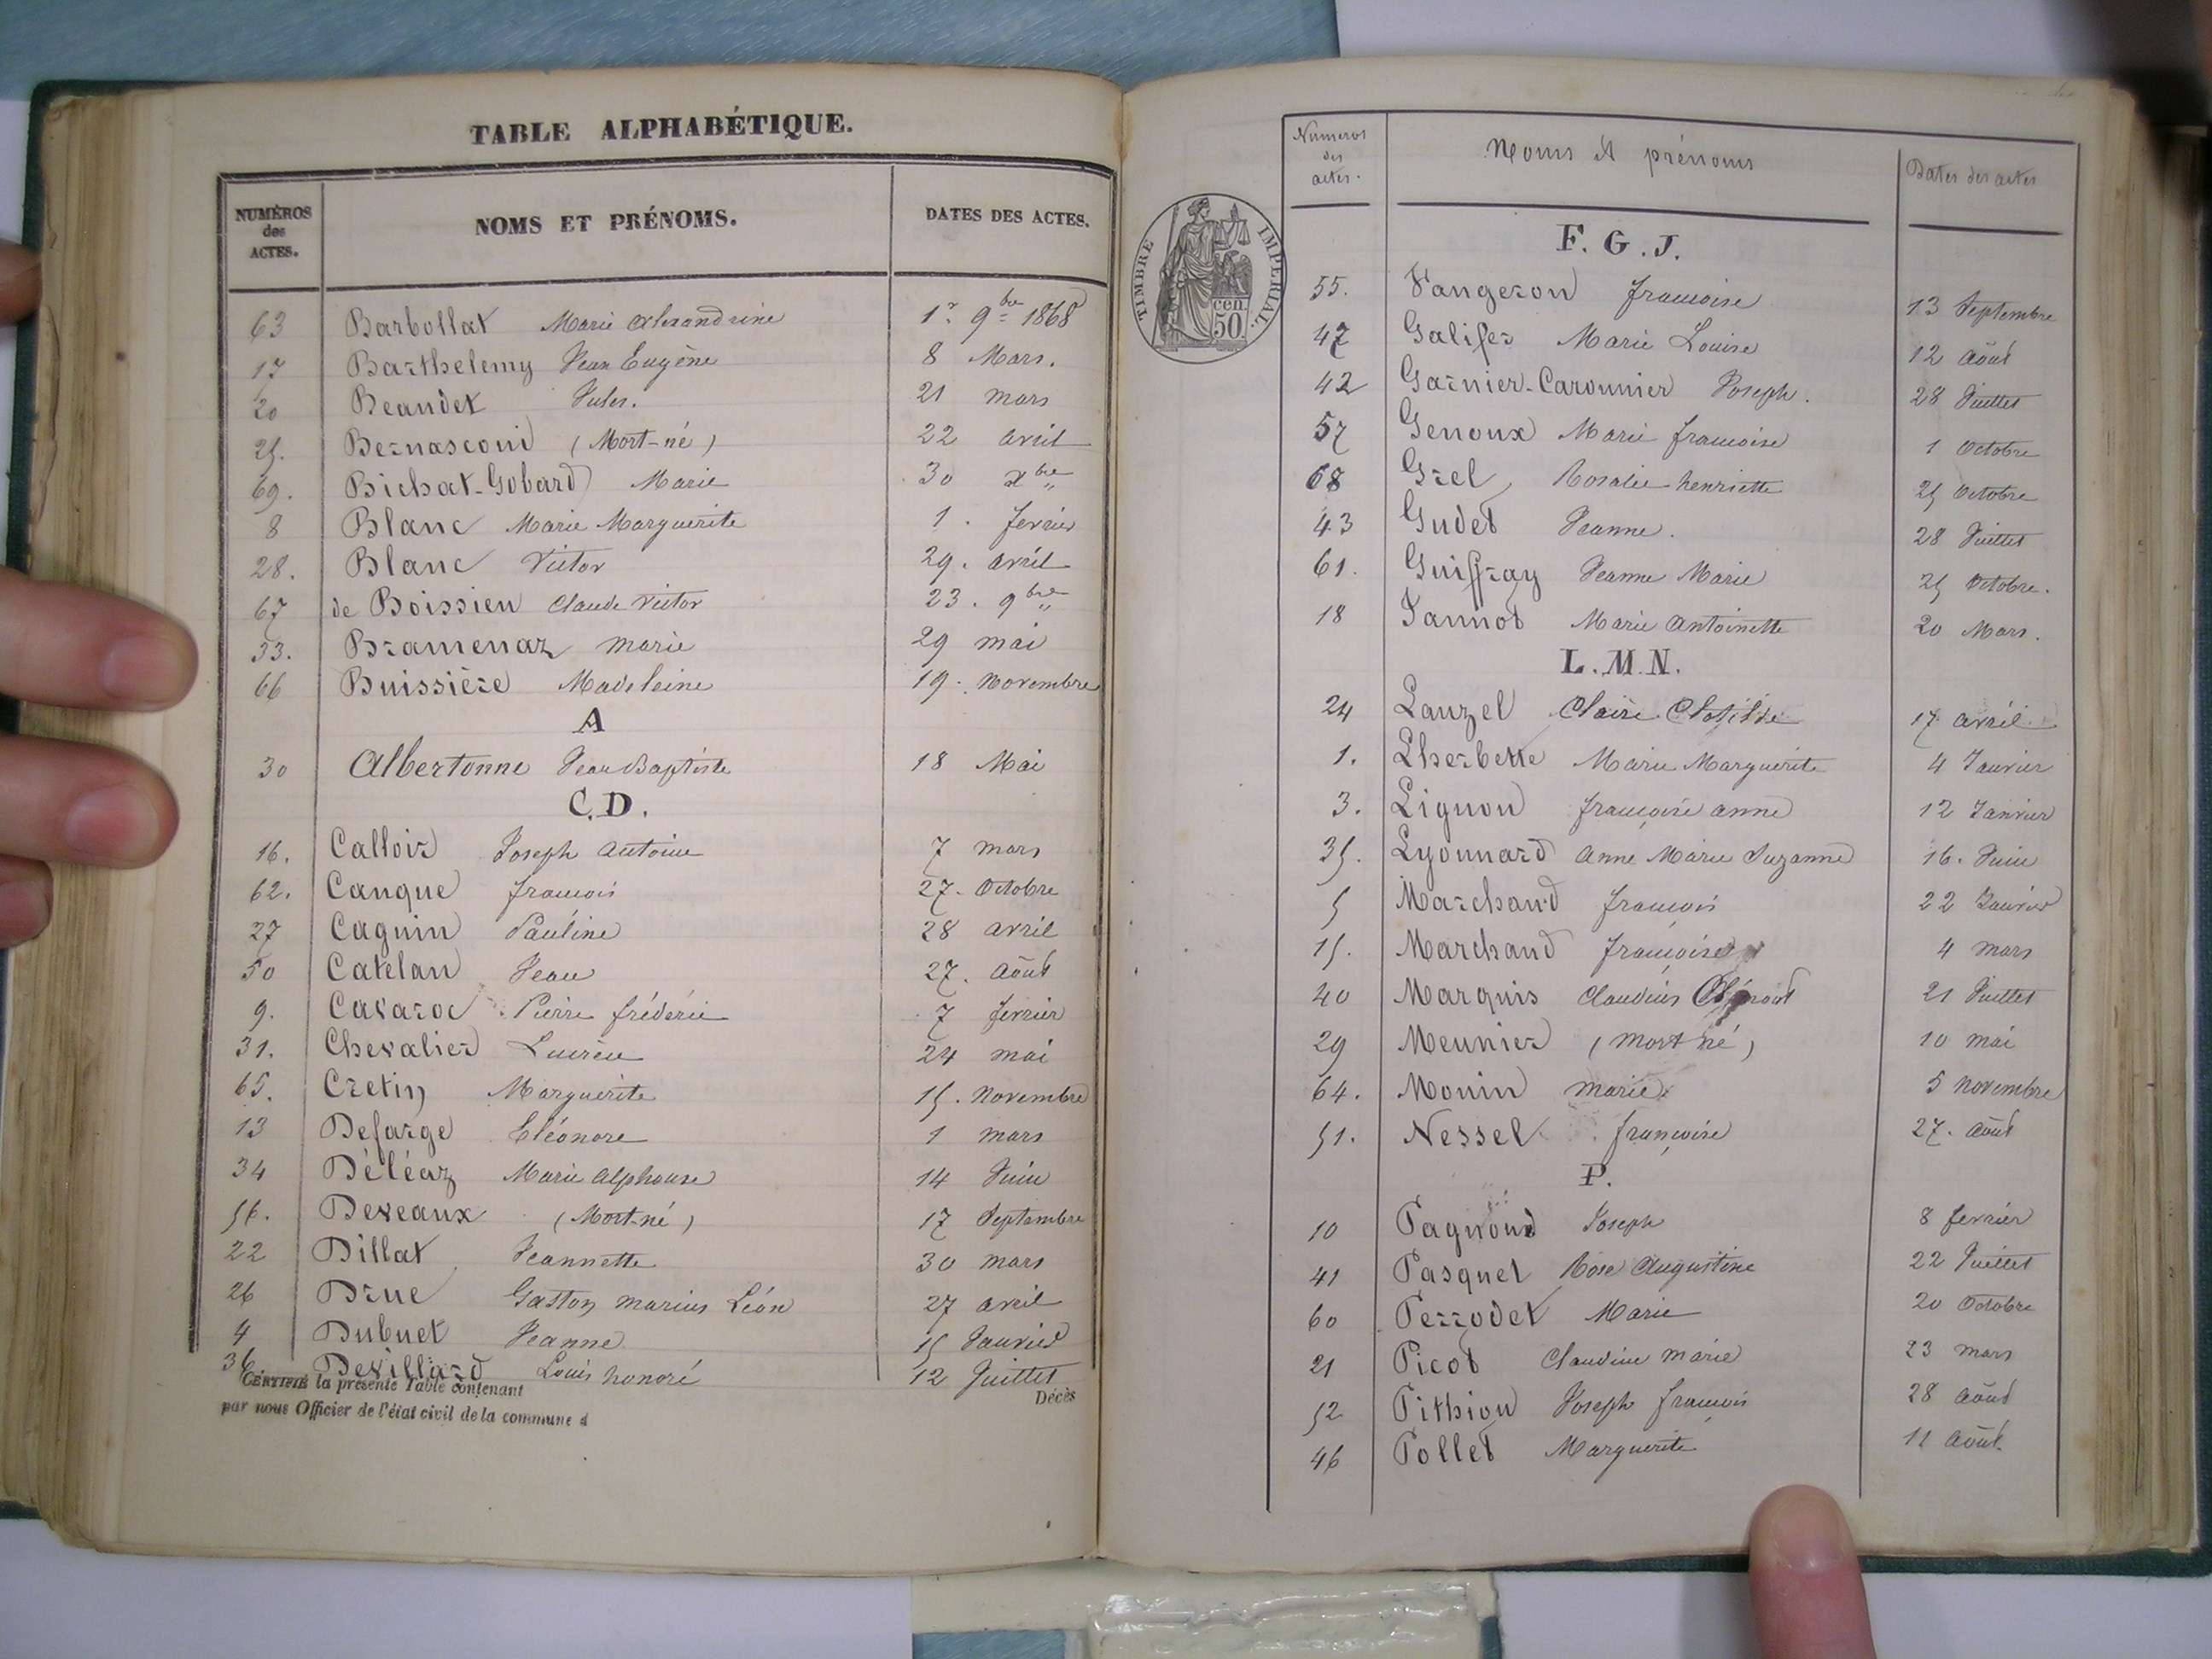 TABLE ALPHABÉTIQUE.
NUMÉROS des ACTES. NOMS ET PRÉNOMS. DATES DES ACTES.
63 Barbollat Marie Alexandrine 1er 9bre 1868
17 Barthelemy Jean Eugène 8 Mars.
20 Beaudet Jules. 21 mars
25. Bernasconi (Mort-né) 22 avril
69. Bichat-Gobard Marie 30 xbre "
8 Blanc Marie Marguerite 1. fevrier
28. Blanc Victor 29. avril
67 de Boissieu Claude Victor 23. 9bre "
33. Bramenaz marie 29 mai
66 Buissière Madeleine 19. Novembre
A
30 Albertonne Jean Baptiste 18 Mai
C.D.
16. Calloir Joseph Antoine 7 mars
62. Canque francois 27. Octobre
27 Caguin Pauline 28 avril
50 Catelan Jean 27. Août
9. Cavaroc Pierre fréderic 7 fevrier
31. Chevalier Lucrèce 24 mai
65. Cretin Marguerite 15. Novembre
13 Defarge Eléonore 1 mars
34 Déléaz Marie Alphonse 14 Juin
56. Deveaux (Mort-né) 17 Septembre
22 Dillat Jeannette 30 mars
26 Drue Gaston marius Léon 27 avril
4 Dubuet Jeanne 15 Janvier
36 Devillard Louis honoré 12 Juillet
CERTIFIÉ la présente Table contenant Décès
par nous Officier de l'état civil de la commune d
TIMBRE IMPERIAL.
50 cen.
Numeros des actes. Noms et prénoms Dates des actes
F. G. J.
55. Fangeron francoise 13 Septembre
47 Galifer Marie Louise 12 Août
42 Garnier-Caronnier Joseph. 28 Juillet
57 Genoux Marie francoise 1 Octobre
68 Grel Rosalie henriette 25 Octobre
43 Gudet Jeanne. 28 Juillet
61. Guiffray Jeanne Marie 25 Octobre.
18 Jannot Marie Antoinette 20 Mars.
L. M. N.
24 Lauzel Claire Clotilde 17 avril
1. Lherbette Marie Marguerite 4 Janvier
3. Lignon françoise anne 12 Janvier
35. Lyonnard Anne Marie Suzanne 16. Juin
5 Marchand françois 22 Janvier
15. Marchand françoise 4 mars
40 Marquis Claudius 21 Juillet
29 Meunier (mort né) 10 mai
64. Monin marie 5 Novembre
51. Nessel françoise 27. Août
P.
10 Pagnoud Joseph 8 fevrier
41 Pasquet Rose Augustine 22 Juillet
60 Perrodet Marie 20 Octobre
21 Picot Claudine marie 23 mars
52 Pithiou Joseph françois 28 août
46 Pollet Marguerite 11 août.